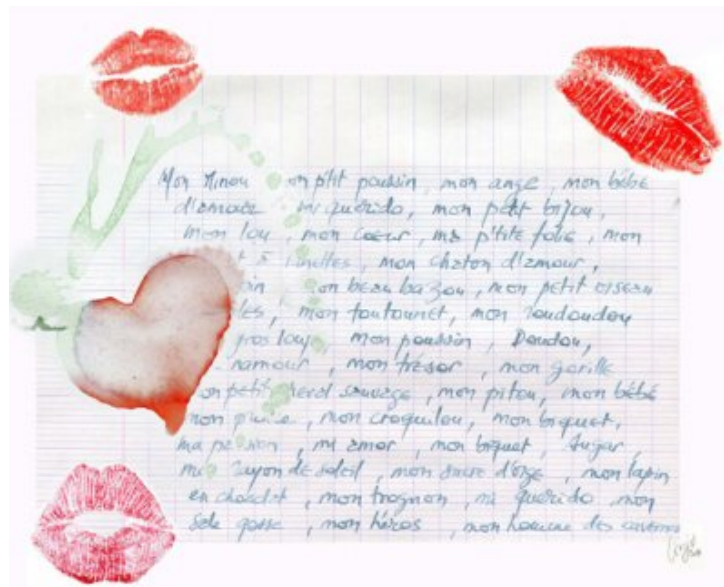 Mon Minou, mon p'tit poussin, mon ange, mon bébé
d'amour, mi querido, mon petit bijou,
mon lou, mon cœur, ma p'tite folie, mon
à lunettes, mon chaton d'amour,
mon beau bazou, mon petit oiseau
mon toutounet, mon roudoudou
gros loup, mon poussin, Doudou,
namour, mon trésor, mon gorille
mon petit cheval sauvage, mon pitou, mon bébé
mon puce, mon croquilou, mon biquet,
ma passion, mi amor, mon biquet, sugar
mon rayon de soleil, mon sucre d'orge, mon lapin
en chocolat, mon trognon, mi querido, mon
sale gosse, mon héros, mon homme des cavernes